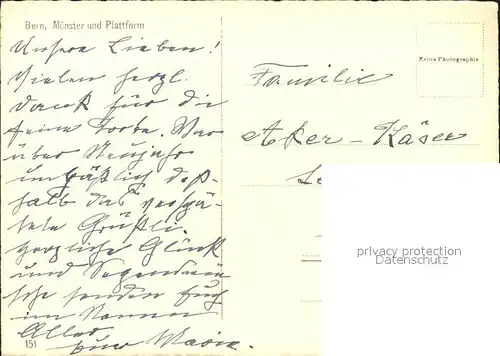 Bern, Münster und Plattform
Unsere Lieben!
Vielen herzl.
Dank für die
feine Torte. War
über Neujahr
unpäßlich deß-
halb das verspä-
tete Grüßli.
Herzliche Glück
und Segenswün
sche senden Euch
im Namen
Aller
Eure Marie.
151
Echte Photographie
Familie
Aker-Käser
privacy protection
Datenschutz